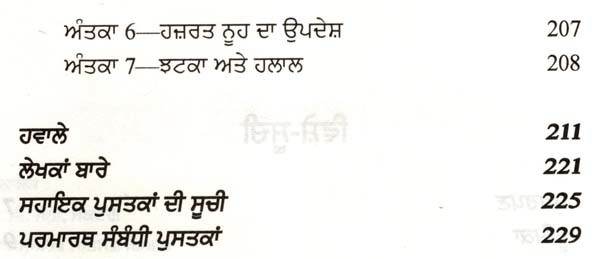 ਅੰਤਕਾ 6—ਹਜ਼ਰਤ ਨੂਹ ਦਾ ਉਪਦੇਸ਼ 207
ਅੰਤਕਾ 7—ਝਟਕਾ ਅਤੇ ਹਲਾਲ 208
ਹਵਾਲੇ 211
ਲੇਖਕਾਂ ਬਾਰੇ 221
ਸਹਾਇਕ ਪੁਸਤਕਾਂ ਦੀ ਸੂਚੀ 225
ਪਰਮਾਰਥ ਸੰਬੰਧੀ ਪੁਸਤਕਾਂ 229